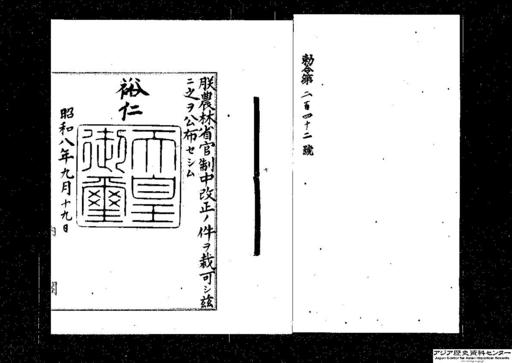 勅令第二百四十二號
朕農林省官制中改正ノ件ヲ裁可シ茲
ニ之ヲ公布セシム
裕仁
天皇御璽
昭和八年九月十九日
内閣
アジア歴史資料センター
Japan Center for Asian Historical Records